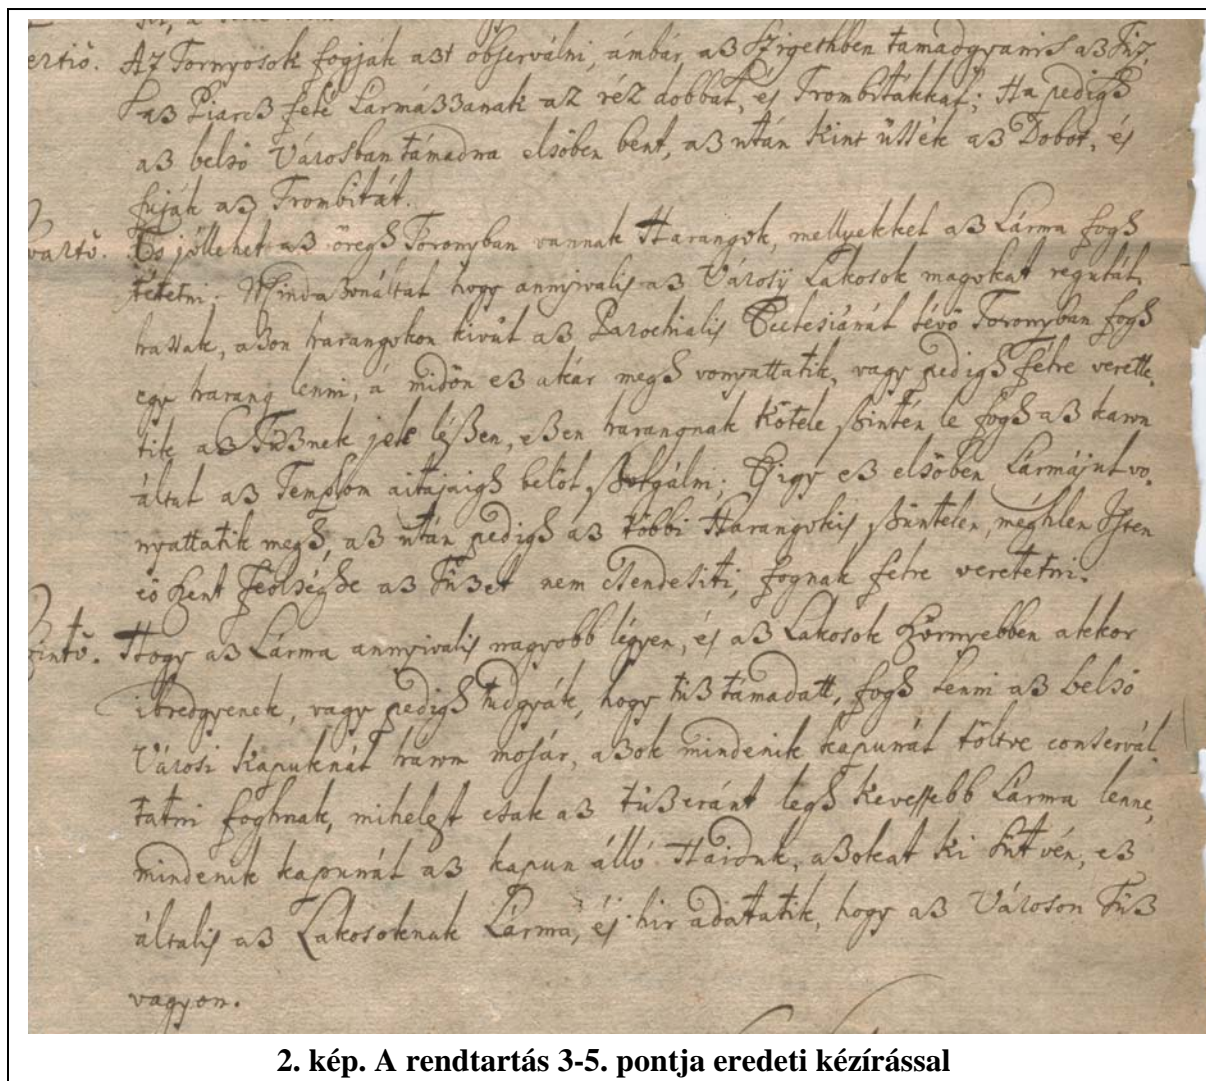 ertiö. Az Tornyosok fogják azt observálni, ámbár az Szigethben támadgyanis az Tüz,
az Piarcz felé Lármázzanak az réz dobbal, és Trombitákkal; Ha pedigh
az belsö Városban támadna elsöben bent, az után kint üssék az Dobot, és
fuják az Trombitát.
vartö. Es jóllehet az öregh Toronyban vannak Harangok, mellyekkel az Lárma fogh
tétetni. Mindazonáltal hogy annyivalis az Városij Lakosok magokat regulál,
hassak, azon harangokon kivül az Parochialis Ecclesiánál lévö Toronyban fogh
egy harang lenni, á midön ez akár megh vonyattatik, vagy pedigh félre verette,
tik, az Tüznek jele lészen, ezen harangnak kötele szintén le fogh az
által az Templom aitajaigh belöl szolgálni; Higy ez elsöben Lármájul vo,
nyattatik megh, az után pedigh az többi Harangokis szüntelen, méghlen Isten
eö Szent Feölséghe az Tüzet nem csendesiti, fognak félre veretetni.
intö. Hogy az Lárma annyivalis nagyobb légyen, és az Lakosok könnyebben akkor
ibredgyenek, vagy pedigh tudgyák, hogy tüz támadatt, fogh lenni az belsö
Városi Kapuknál három mosár, azok mindenik kapunál töltve conservál,
tatni foghnak, mihelyst csak az tüz eránt legh kevessebb Lárma lenne,
mindenik kapunál az kapun álló Haiduk, azokat ki sütvén, ez
általis az Lakosoknak Lárma, és hir adattatik, hogy az Városon Tüz
vagyon.
2. kép. A rendtartás 3-5. pontja eredeti kézírással